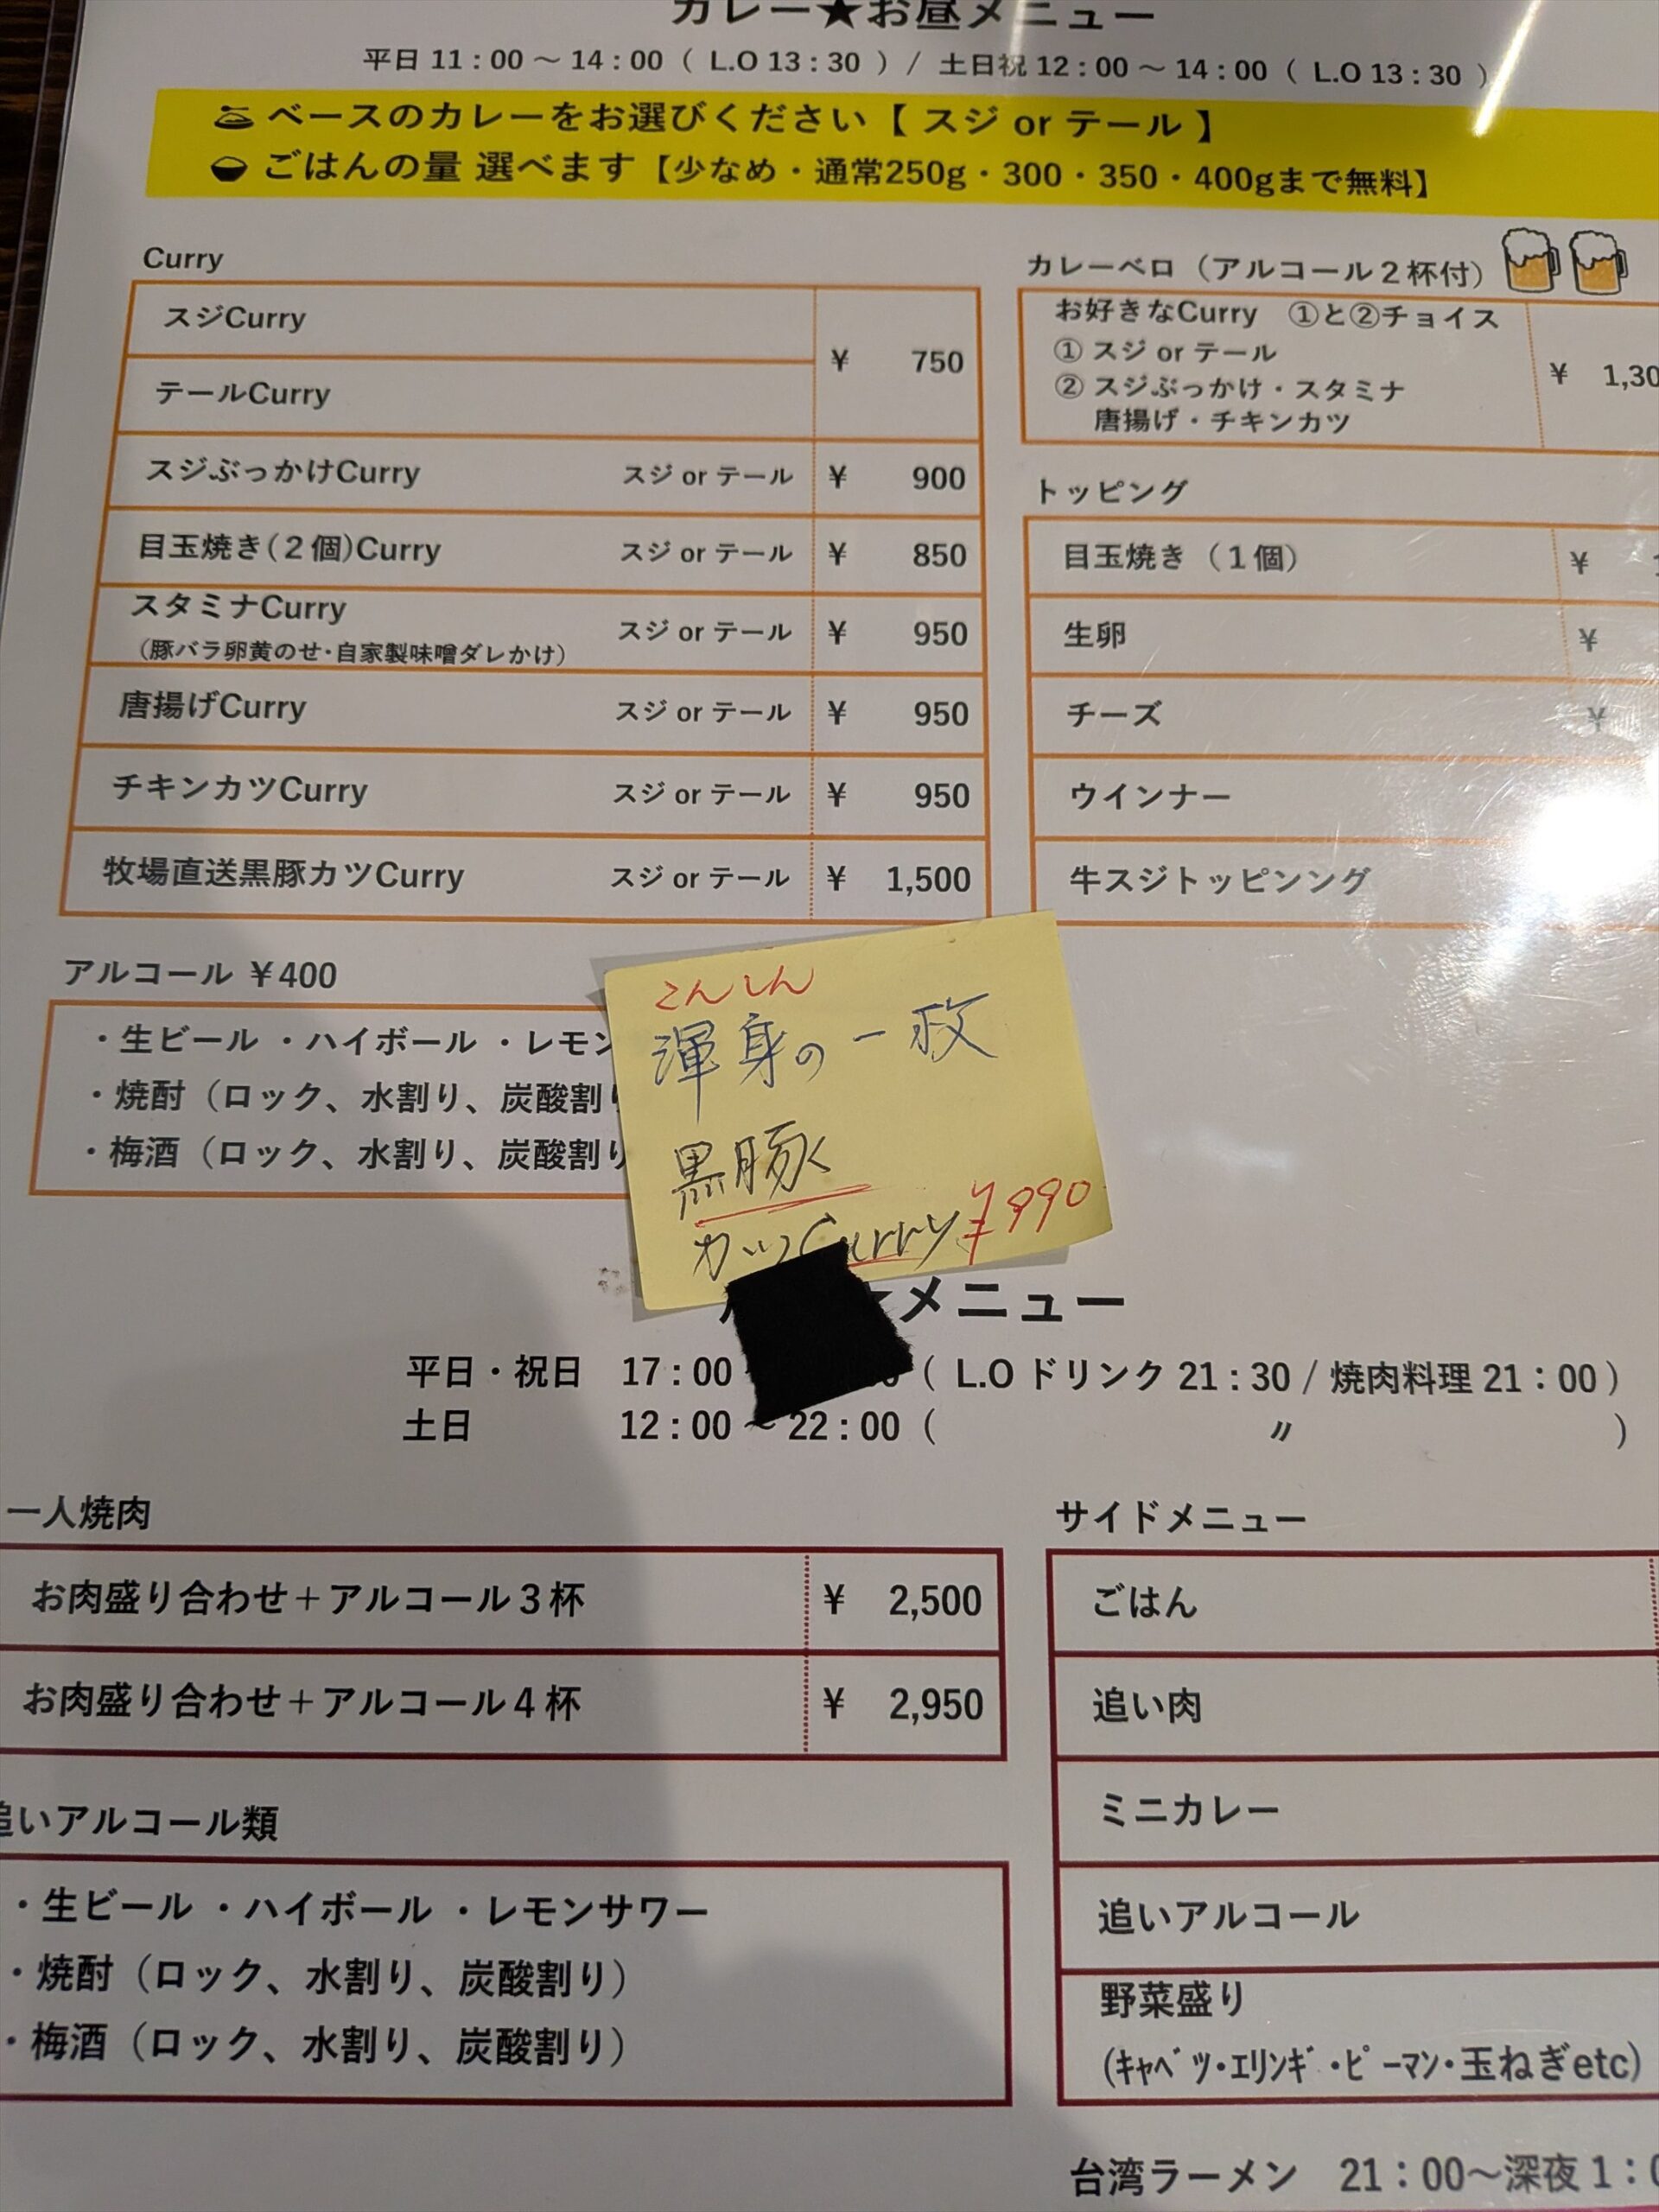 カレー★お昼メニュー
平日 11：00 ～ 14：00（ L.O 13：30 ）/ 土日祝 12：00 ～ 14：00（ L.O 13：30 ）
ベースのカレーをお選びください【 スジ or テール 】
ごはんの量 選べます【少なめ・通常250g・300・350・400gまで無料】
Curry
スジCurry
¥ 750
テールCurry
スジぶっかけCurry スジ or テール ¥ 900
目玉焼き(２個)Curry スジ or テール ¥ 850
スタミナCurry
（豚バラ卵黄のせ・自家製味噌ダレかけ） スジ or テール ¥ 950
唐揚げCurry スジ or テール ¥ 950
チキンカツCurry スジ or テール ¥ 950
牧場直送黒豚カツCurry スジ or テール ¥ 1,500
カレーベロ（アルコール２杯付）
お好きなCurry ①と②チョイス
① スジ or テール
② スジぶっかけ・スタミナ
唐揚げ・チキンカツ
¥ 1,30
トッピング
目玉焼き（１個） ¥
生卵 ¥
チーズ ¥
ウインナー
牛スジトッピンング
アルコール ￥400
・生ビール ・ハイボール ・レモン
・焼酎（ロック、水割り、炭酸割り
・梅酒（ロック、水割り、炭酸割り
こんしん
渾身の一枚
黒豚
カツCurry ¥990
★メニュー
平日・祝日 17：00 （ L.O ドリンク 21：30 / 焼肉料理 21：00 ）
土日 12：00 ～ 22：00（ 〃 ）
一人焼肉
お肉盛り合わせ＋アルコール３杯 ¥ 2,500
お肉盛り合わせ＋アルコール４杯 ¥ 2,950
追いアルコール類
・生ビール ・ハイボール ・レモンサワー
・焼酎（ロック、水割り、炭酸割り）
・梅酒（ロック、水割り、炭酸割り）
サイドメニュー
ごはん
追い肉
ミニカレー
追いアルコール
野菜盛り
(ｷｬﾍﾞﾂ･ｴﾘﾝｷﾞ･ﾋﾟｰﾏﾝ･玉ねぎetc)
台湾ラーメン 21：00～深夜 1：0